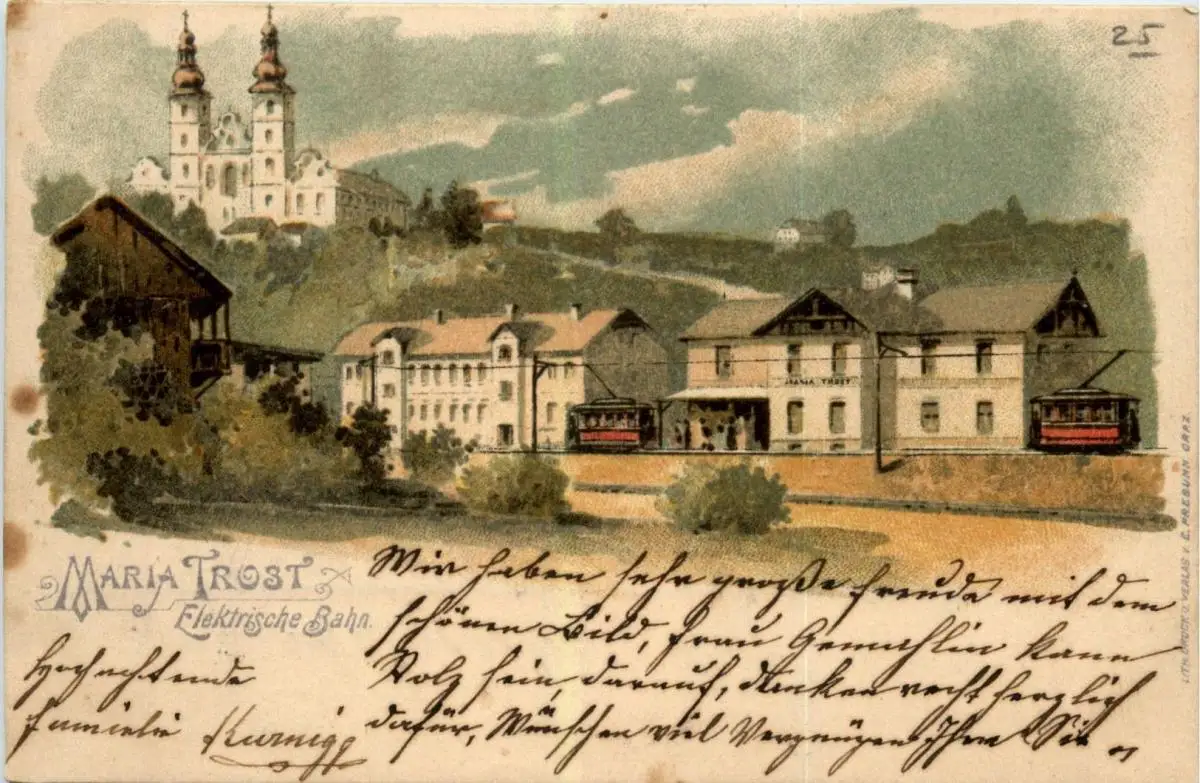 25
MARIA TROST
MARIA TROST
Elektrische Bahn.
Wir haben sehr große freude mit dem
schönen Bild, frau Gemahlin kann
Stolz sein, darauf, danken recht herzlich
dafür, Wünschen viel Vergnügen Ihm Sie
Hochachtende
familie Kurnigg
LITH. DRUCK U. VERLAG V. E. PREBUHN GRAZ.